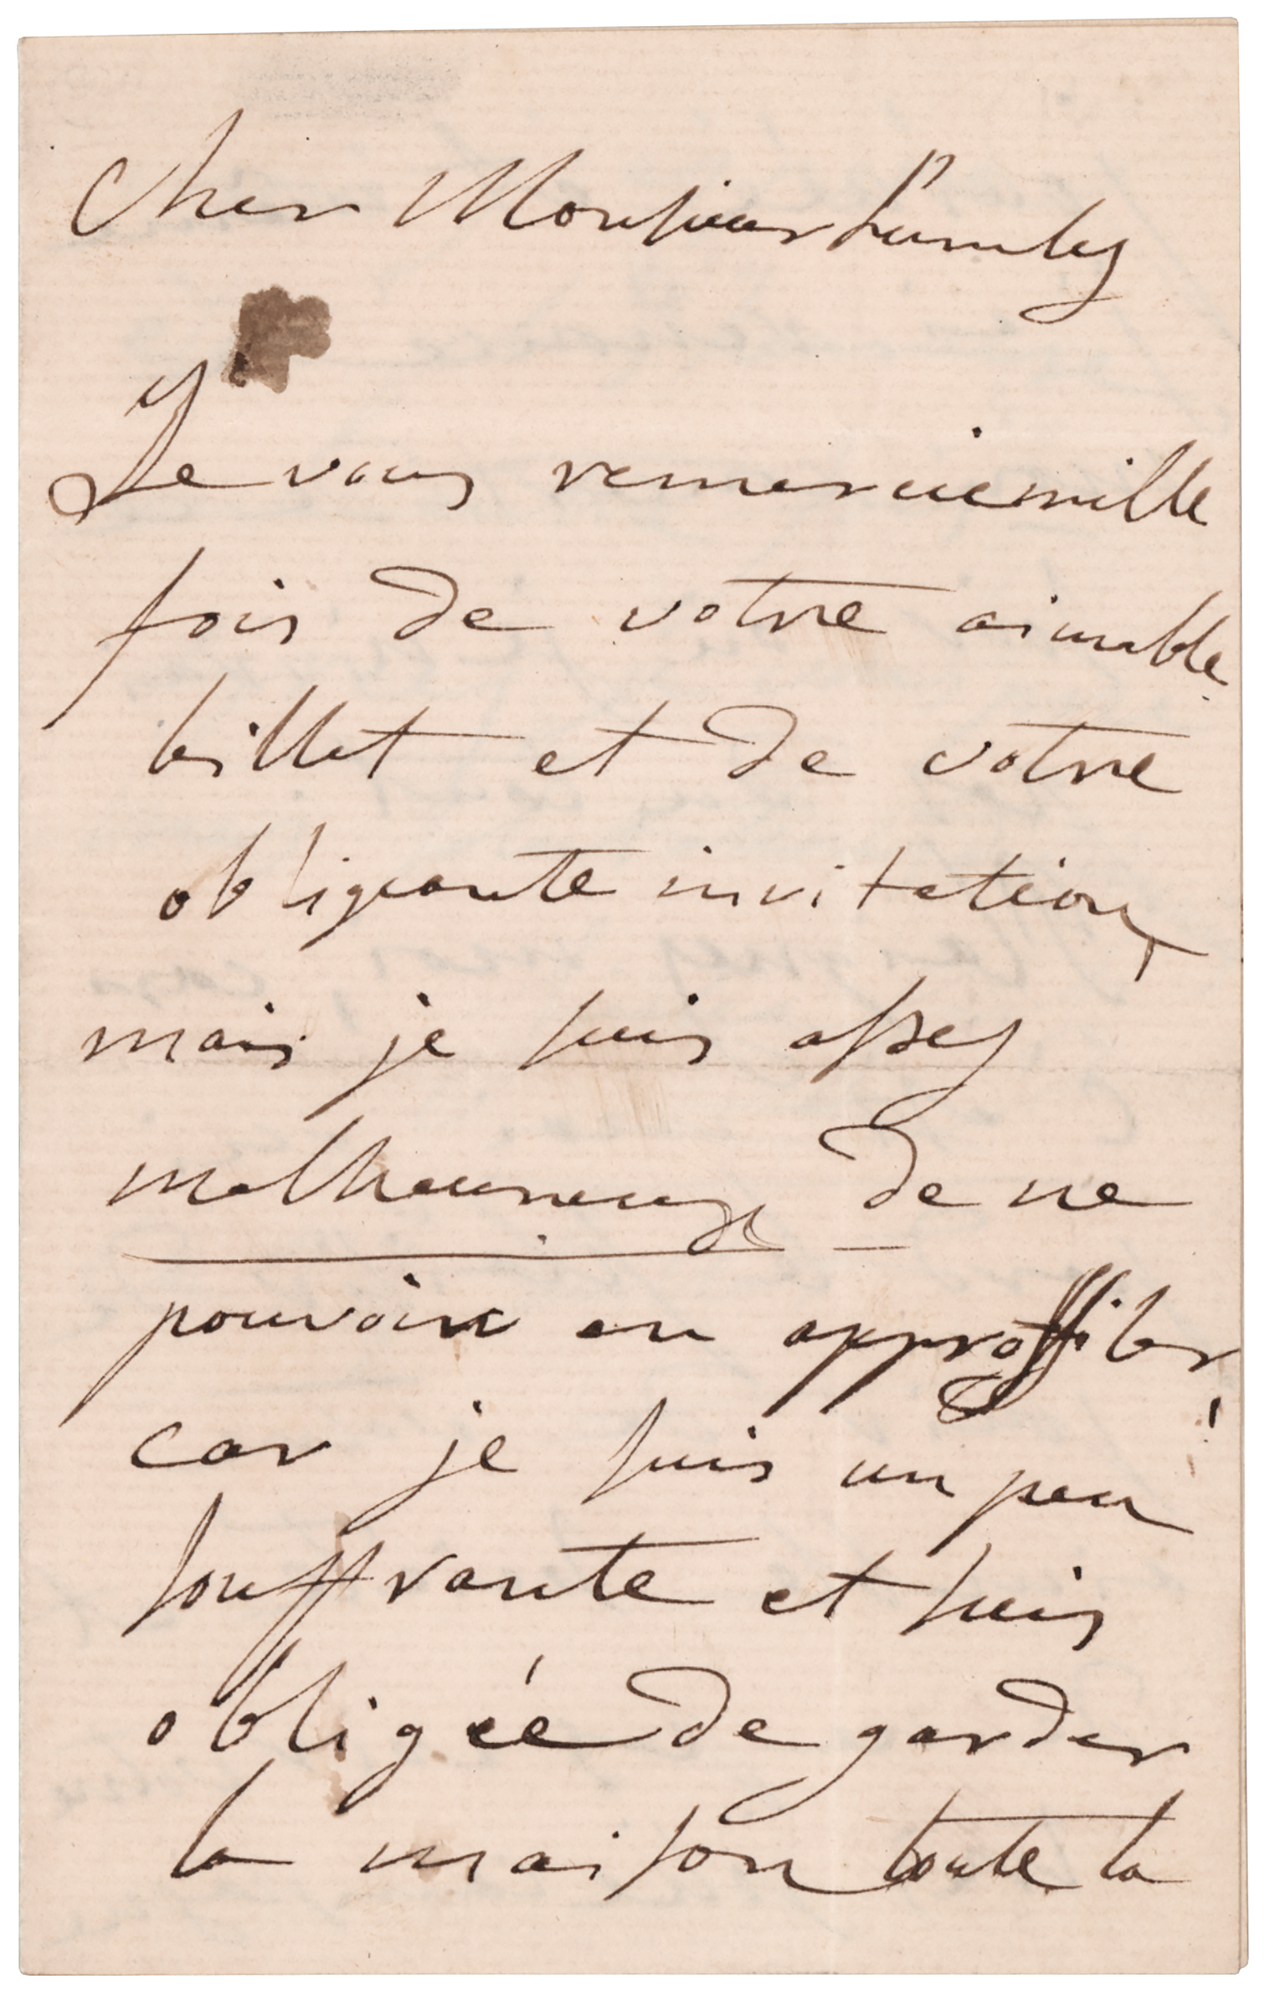 Cher Monsieur
Je vous remercie mille
fois de votre aimable
billet et de votre
obligeante invitation,
mais je suis assez
malheureuse de ne
pouvoir en approffiter
car je suis un peu
souffrante et suis
obligée de garder
la maison toute la